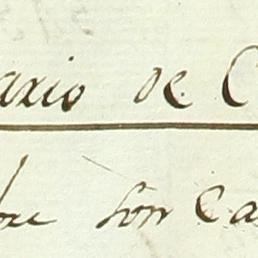 ario de C
bre son Ca